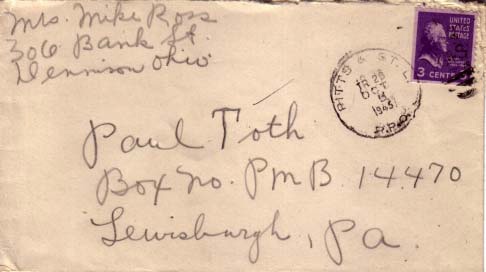 Mrs. Mike Ross
306 Bank St.
Dennison Ohio
PITTS & ST. L.
TR 26
OCT
1945
R.P.O.
UNITED
STATES
POSTAGE
3 CENTS
Paul Toth
Box No. PMB 14470
Lewisburgh, Pa.